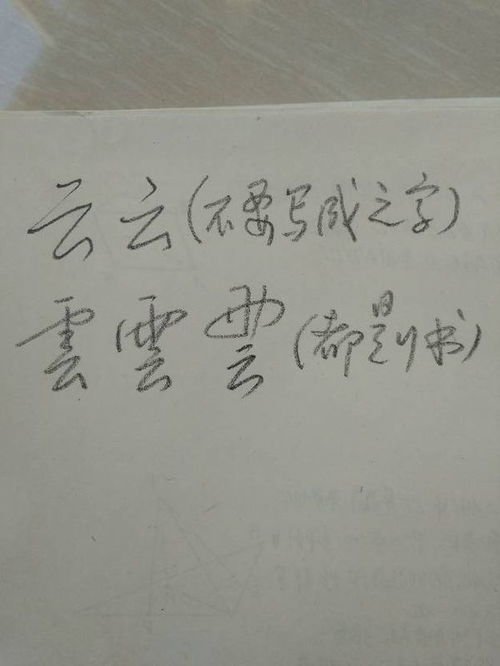 云云(不要写成之字)
雲雲雲(都是行书)